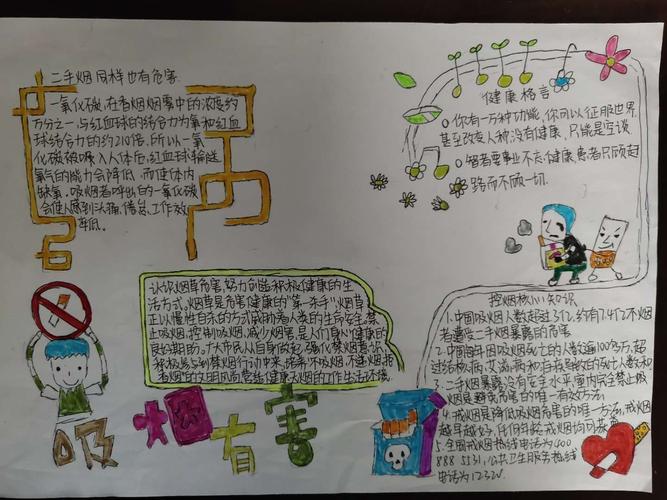 二手烟同样也有危害
一氧化碳,在香烟烟雾中的浓度约
万分之一,与红血球的结合力为氧和红血
球结合力的约210倍,所以一氧
化碳被吸入人体后,红血球输送
氧气的能力会降低,而使体内
缺氧,吸烟者呼出的一氧化碳
会使人感到头痛、倦怠、工作效
率低.
健康格言
你有一万种功能,你可以征服世界,
甚至改变人种,没有健康,只能是空谈
智者要事业不忘健康,愚者只顾赶
路而不顾一切.
认识烟草危害,努力创造积极健康的生
活方式,烟草是危害健康的"第一杀手"烟草
正以慢性自杀的方式威胁着人类的生命安全,禁
止吸烟,控制吸烟,减少烟害,是人们身心健康的
良好期盼.
控烟核心知识
1.中国吸烟人数超过3亿,约有7.4亿不吸烟
者遭受二手烟暴露的危害
2.中国每年因吸烟死亡的人数逾100万,超
3.二手烟暴露没有安全水平,室内完全禁止吸
烟是避免危害的唯一有效方法,
4.戒烟是降低吸烟危害的唯一方法,戒烟
越早越好,任何年龄戒烟均可获益
5.全国戒烟热线电话为400
888 5531,公共卫生服务热线
电话为12320
吸烟有害